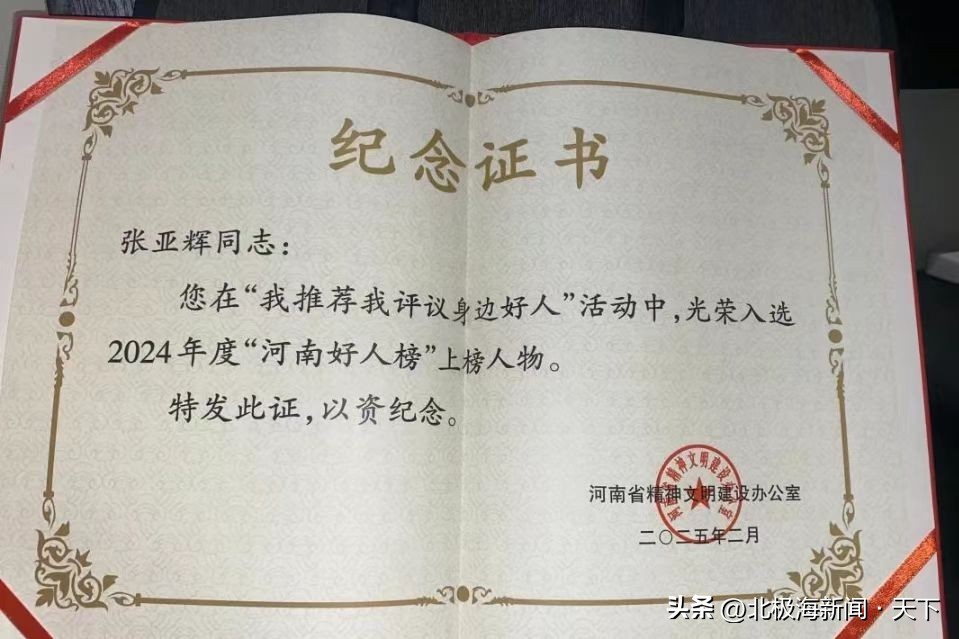 纪念证书
张亚辉同志：
您在“我推荐我评议身边好人”活动中，光荣入选
2024年度“河南好人榜”上榜人物。
特发此证，以资纪念。
河南省精神文明建设办公室
河南省精神文明建设办公室
二〇二五年二月
头条 @北极海新闻·天下